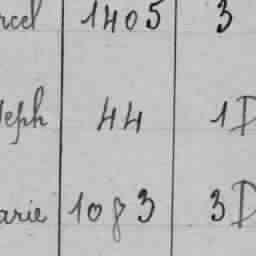 rcel 1405 3
seph 44 1D
arie 1083 3D